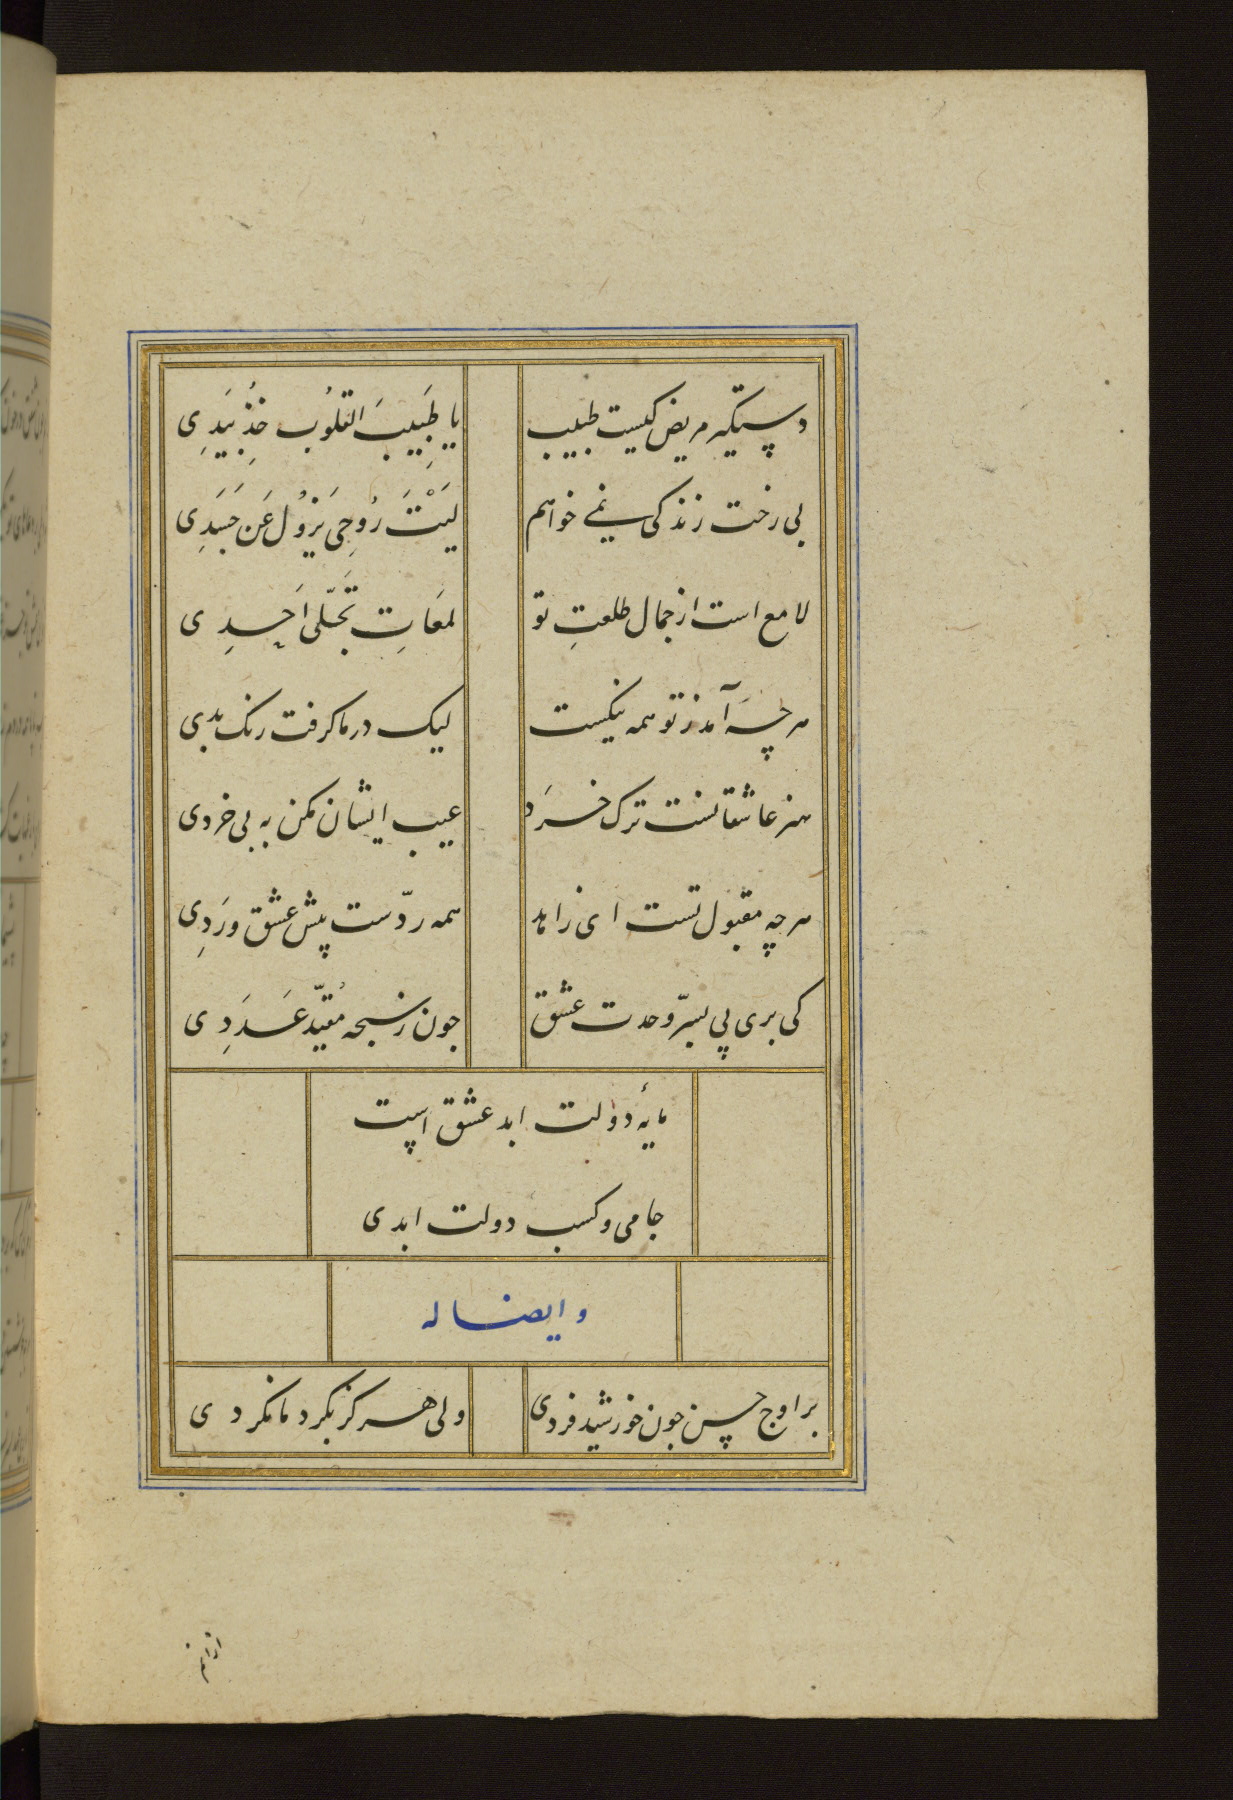 دستگیر مریض کیست طبیب
یا طَبِیبَ القلُوب خُذْ بَیَدِی
بی رخت زندکی نمی خواهم
لَیْتَ رُوحِیَ یَزُول عَن جَسَدِی
لامع است از جمال طلعتِ تو
لمَعَاتِ تَجَلّی اَحَدِی
هرچه آمد ز تو همه نیکست
لیک در ما کرفت رنک بدی
هنر عاشقانست ترک خرَد
عیب ایشان مکن به بی خردی
هرچه مقبول تست ای زاهد
همه ردّست پیش عشق و رَدِی
کی بری پی بسرّ وحدت عشق
جون ز سبحه مُقیّد عَدَدِی
مایۀ دولت ابد عشق است
جامی و کسب دولت ابدی
و ایضا له
بر اوج حسن جون خورشید فردی
ولی هرکز بکرد ما نکردی